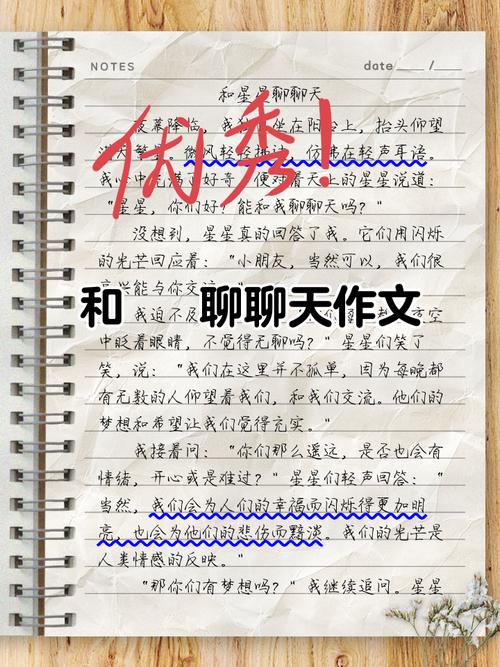 NOTES
date ____ / ____
和星星聊聊天
夜幕降临，我独坐在阳台上，抬头仰望
满天繁星。微风轻轻拂过，仿佛在轻声耳语。
我心中充满了好奇，便对着天上的星星说道：
“星星，你们好？能和我聊聊天吗？”
优秀！
没想到，星星真的回答了我。它们用闪烁
的光芒回应着：“小朋友，当然可以，我们很
高兴能与你交流。”
和 聊聊天作文
我迫不及
空
中眨着眼睛，不觉得无聊吗？”星星们笑了
笑，说：“我们在这里并不孤单，因为每晚都
有无数的人仰望着我们，和我们交流。他们的
梦想和希望让我们觉得充实。”
我接着问：“你们那么遥远，是否也会有
情绪，开心或是难过？”星星们轻声回答：“
当然，我们会为人们的幸福而闪烁得更加明
亮，也会为他们的悲伤而黯淡。我们的光芒是
人类情感的反映。”
“那你们有梦想吗？”我继续追问。星星